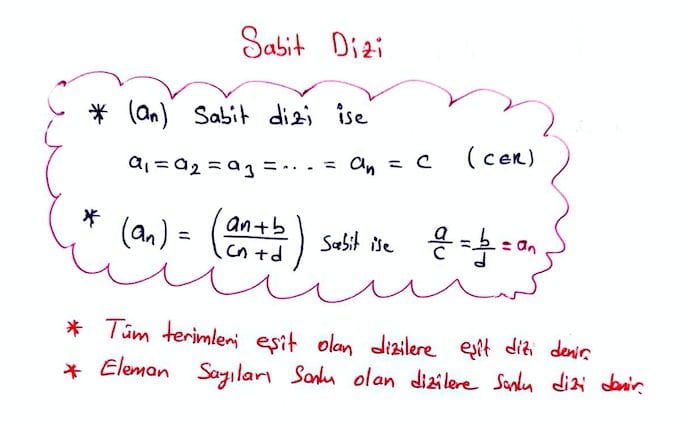 Sabit Dizi
* (an) Sabit dizi ise
a1 = a2 = a3 = ... = an = c (c∈R)
* (an) = (an+b / cn+d) Sabit ise a/c = b/d = an
* Tüm terimleri eşit olan dizilere eşit dizi denir.
* Eleman Sayıları Sonlu olan dizilere Sonlu dizi denir.